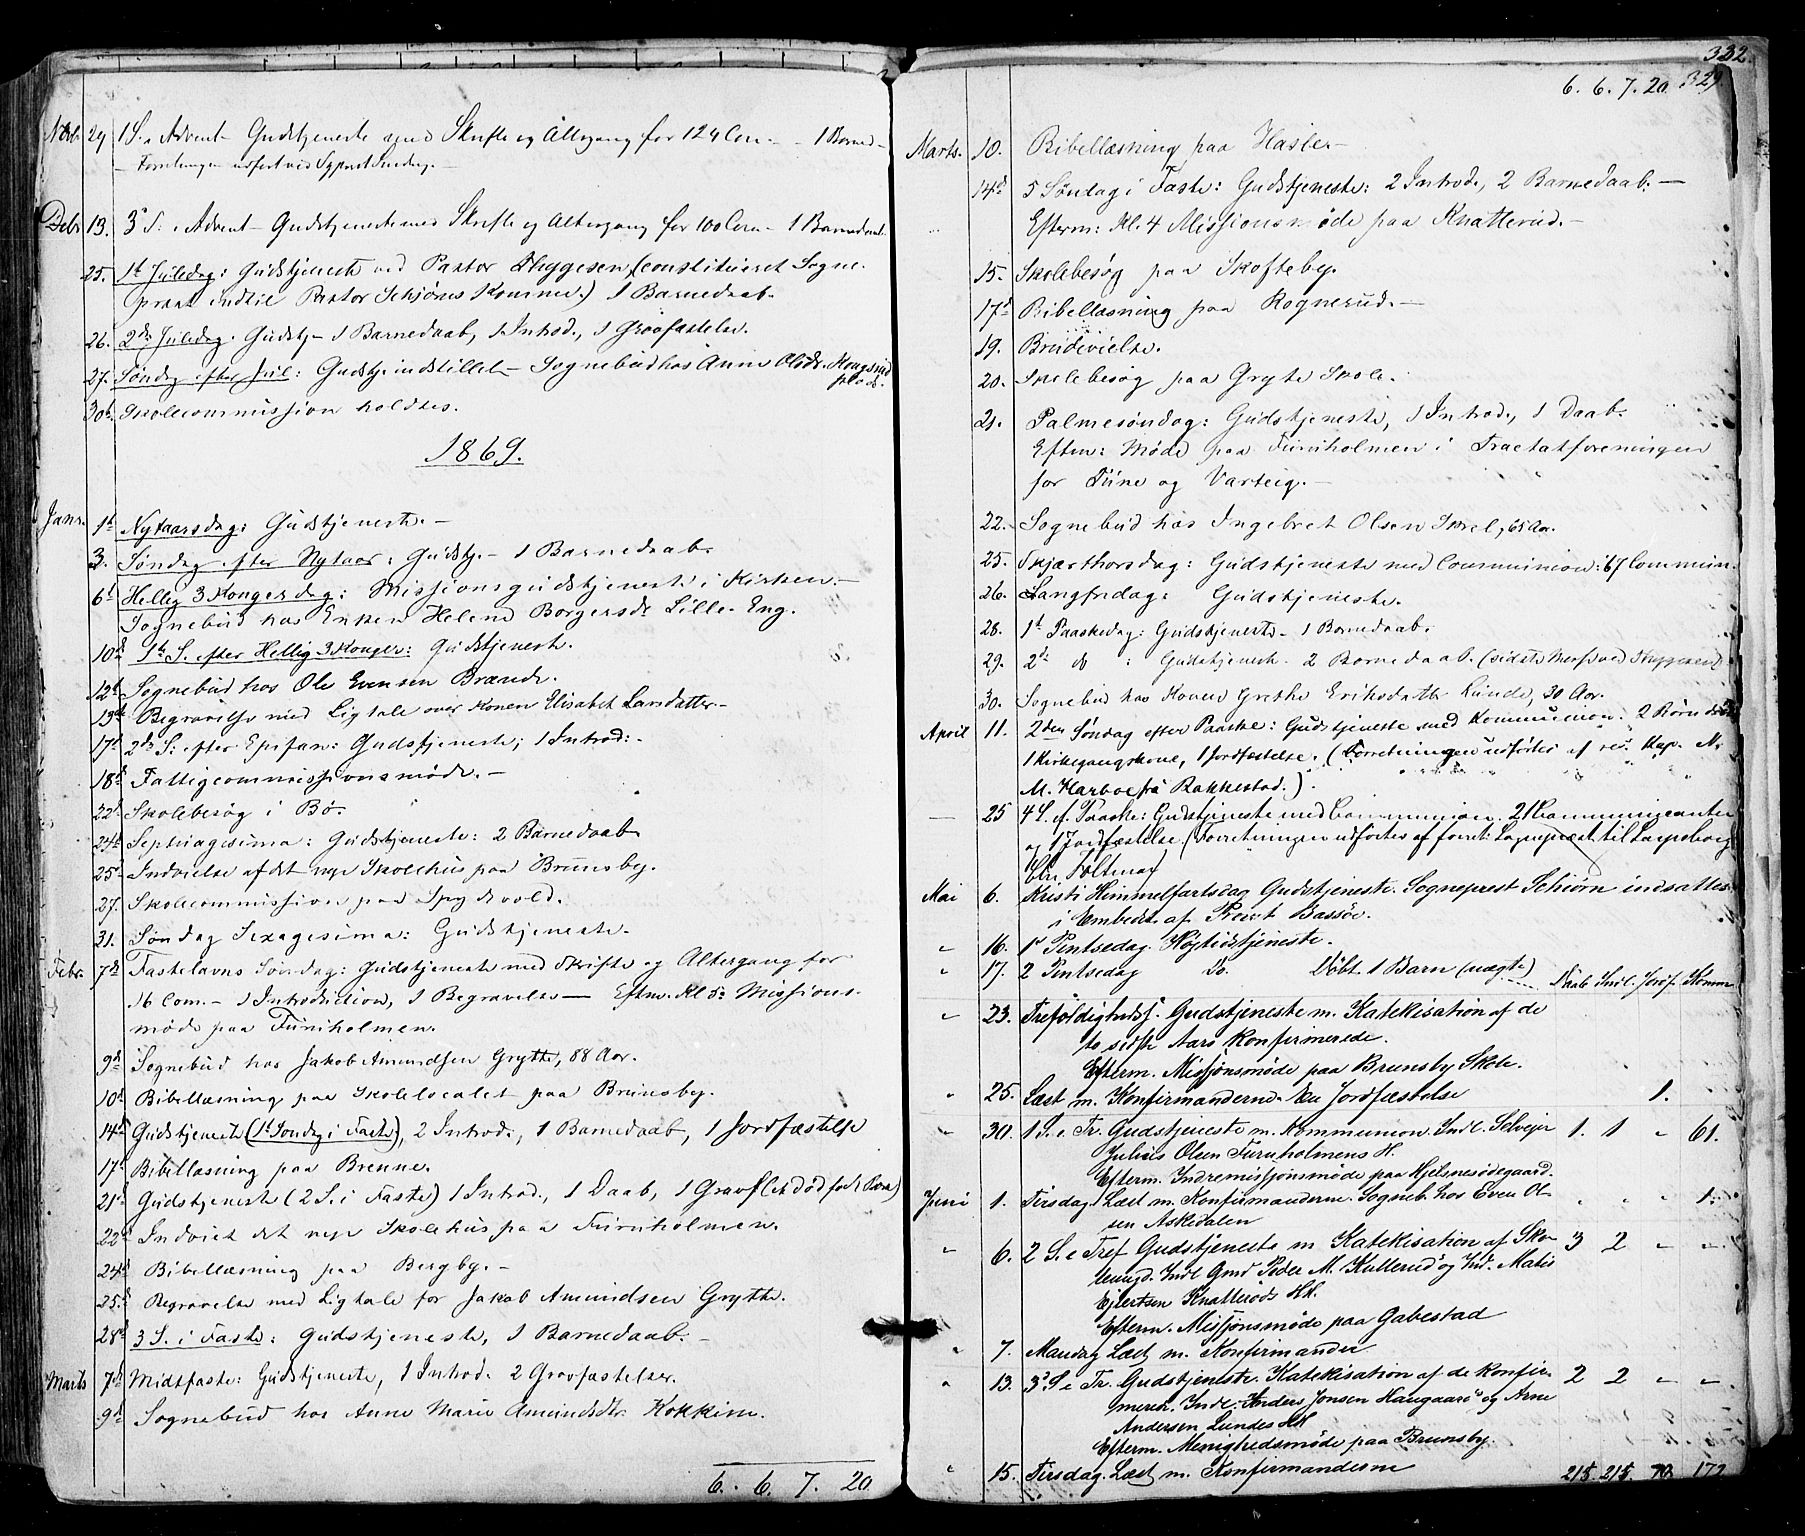 Novb. 29 1 S. i Advent - Gudstjeneste med Skrifte og Altergang for 124 Com. - 1 Barned.
- Forretningen udført ved
Debr 13. 3die S. i Advent - Gudstjeneste med Skrifte og Altergang for 100 Com. - 1 Barnedaab
25. 1ste Juledag: Gudstjeneste ved Pastor Thygesen (constitueret Sogne-
præst indtil Pastor Schjørns Komme.) 1 Barnedaab.
26. 2den Juledag. Gudstj. - 1 Barnedaab, 1 Introd., 1 Gravfæstelse.
27. Søndag efter Juul: Gudstj. indstillet - Sognebud hos Anne Olsdr. Haugsrud
30te Skolecommission holdtes.
1869.
Janr. 1ste Nytaarsdag: Gudstjeneste. -
3. Søndag efter Nytaar: Gudstj. - 1 Barnedaab.
6te Hellig 3 Konger dag: Missionsgudstjeneste i Kirken. -
Sognebud hos Enken Helene Borgersdr. Lille-Eng.
10de 1ste S. efter Hellig 3 Konger: Gudstjeneste.
12te Sognebud hos Ole Evensen Brænde.
13de Begravelse med Ligtale over Konen Elisabet Larsdatter -
17de 2den S. efter Epifan: Gudstjeneste; 1 Introd: -
18de Fattigcommissionsmøde. -
22de Skolebesøg i Bø.
24de Septuagesima: Gudstjeneste: 2 Barnedaab
25de Indvielse af det nye Skolehus paa Brunsby.
27. Skolecommission paa Spydevold.
31. Søndag Sexagesima: Gudstjeneste.
Febr. 7de Fastelavns Søndag: Gudstjeneste med Skrifte og Altergang for
16 Com. - 1 Introduction, 1 Begravelse - Efterm. Kl. 5: Missions-
møde paa Furuholmen.
9de Sognebud hos Jakob Amundsen Grytte, 88 Aar.
10de Bibellæsning paa Skolelocalet paa Brunsby.
14de Gudstjeneste (1ste Søndag i Faste), 2 Introd., 1 Barnedaab, 1 Jordfæstelse
17de Bibellæsning paa Brenne.
21de Gudstjeneste (2 S. i Faste) 1 Introd., 1 Daab, 1 Gravf. (et dødfødt Barn)
22de Indviet det nye Skolehus paa Furuholmen.
24de Bibellæsning paa Bergby. -
25de Begravelse med Ligtale for Jakob Amundsen Grytte.
28de 3 S. i Faste: Gudstjeneste, 1 Barnedaab. -
Marts 7de Midtfaste: Gudstjeneste, 1 Introd. 2 Gravfæstelser.
9de Sognebud hos Anne Marie Amundsdr. Kokkim.
6. 6. 7. 20
332.
6. 6. 7. 20. 329
Marts. 10. Bibellæsning paa Hasle. -
14de 5 Søndag i Faste: Gudstjeneste: 2 Introd., 2 Barnedaab. -
Efterm: Kl. 4 Missionsmøde paa Knatterud. -
15. Skolebesøg paa Skofteby.
17de Bibellæsning paa Rognerud. -
19. Brudevielse.
20. Skolebesøg paa Gryte Skole.
21. Palmesøndag: Gudstjeneste, 1 Introd., 1 Daab.
Efterm: Møde paa Furuholmen i Tractatforeningen
for Tune og Varteig. -
22. Sognebud hos Ingebret Olsen Skrel, 65 Aar.
25. Skjærthorsdag: Gudstjeneste med Communion: 67 Commun.
26. Langfredag: Gudstjeneste.
28. 1ste Paaskedag: Gudstjeneste - 1 Barnedaab.
29. 2den do : Gudstjeneste. 2 Barnedaab. (sidste Messe ved Thygesen)
30. Sognebud hos Konen Grethe Eriksdatter Lunde, 30 Aar.
April 11. 2den Søndag efter Paaske: Gudstjeneste med Kommunion. 2 Børn døbt
1 Kirkegangskone, 1 Jordfæstelse. (Forretningen udførtes af res. Kap. N.
M. Harboe fra Rakkestad.)
— 25 4 S. ef. Paaske: Gudstjeneste med Communion. 21 Communicanter
og 1 Jordfæstelse. (Forretningen udførtes af forret: Sognepræst til Sarpsborg
Chr. Holtmar)
Mai 6. Kristi Himmelfartsdag Gudstjeneste. Sogneprest Schiørn indsattes
i Embedet af Provst Bassøe.
" 16. 1ste Pintsedag. Høitidstjeneste.
" 17. 2 Pintsedag Do. Døbt 1 Barn (uægte) Daab Indl. Jordf. Komm
" 23. Trefoldighedsf. Gudstjeneste m. Katekisation af de
to sidste Aars Konfirmerede.
Efterm. Missjonsmøde paa Brunsby Skole.
" 25. Læst m. Konfirmanderne. En Jordfæstelse 1.
" 30. 1 S. e Tr. Gudstjeneste m. Kommunion. Indl. Selvejer 1. 1 " 61.
Julius Olsen Furuholmens H.
Efterm. Indremissjonsmøde paa Hjelsnesødegaard.
Juni 1. Tirsdag. Læst m. Konfirmanderne. Sogneb. hos Even Ol- " " " 1.
sen Askedalen
" 6. 2 S. e Tref Gudstjeneste m Katekisation af Sko- 3 2 " "
leungd. Indl Gmd Peder M. Kullerud og Ind. Matis
Ejlertsen Knatterøds HH.
Efterm. Missjonsmøde paa Gabestad
" 7. Mandag Læst m. Konfirmander
" 13. 3die S e Tr. Gudstjeneste. Katekisation af de konfir- 2 2 " "
merer. Indl. Anders Jonsen Haugaard og Arne
Andersen Lundes HH
Efterm. Menighedsmøde paa Brunsby.
" 15. Tirsdag. Læst m. Konfirmanderne 215 215 70 172